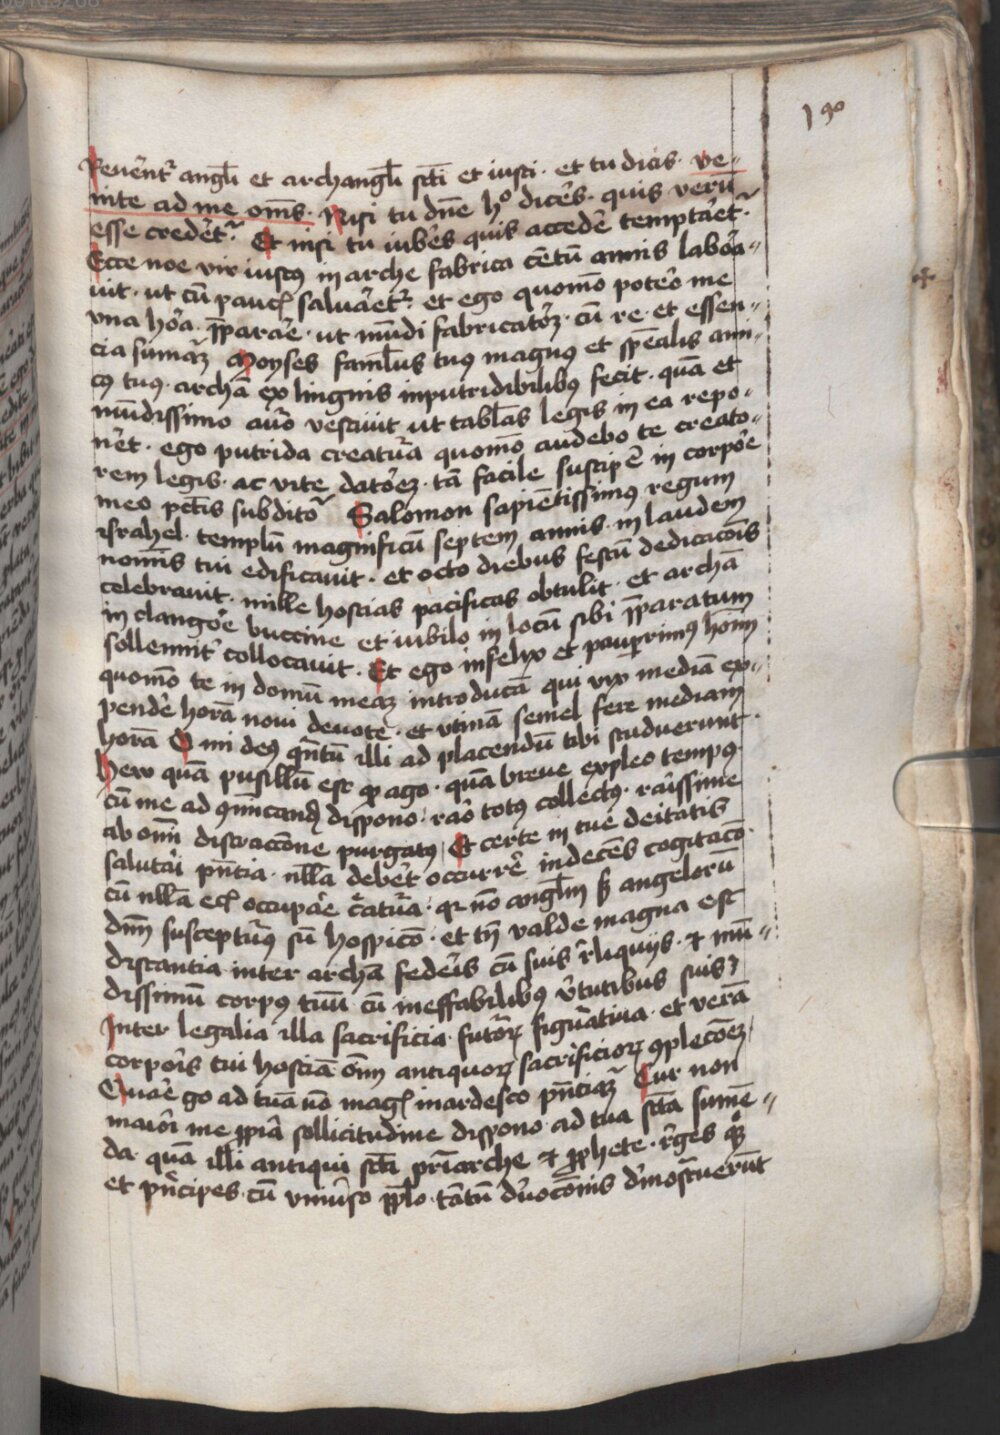 190
Reuēnt᷑ angl̄i et archangl̄i sc̄ti et iusti · et tu dicis · ve-
nite ad me om̄s · Nisi tu dn̄e hº dicēs · quis verū
esse crederet᷑ · Et nisi tu iubēs quis accedē temptaret᷑ ·
Ecce noe vir iustꝰ in arche fabrica cētū annis labora-
uit · ut cū pauc̄ saluaret᷑ · et ego quomō potero me
vna hora p̄parare · ut mūdi fabricatorē · cū re · et essen-
cia sumaꝫ Moyses faml̄us tuꝰ magnꝰ et sp̄ealis ami-
cꝰ tuꝰ · archā ex lingnis inputridibilibꝰ fecit · quā et
mūdissimo auro vestiuit ut tabl̄as legis in ea repo-
nēt · ego putrida creatura quomō audebo te creato-
rem legis · ac vite datorē · tā facile suscipē in corpore
meo pc̄tis subdito Salomon sapiētissimꝰ regum
israhel · templū magnificū septem annis · in laudem
nom̄is tui edificauit · et octo diebus festū dedicaconis
celebrauit · mille hostias pacificas obtulit · et archā
in clangore buccine et iubilo in locū sibi p̄paratum
sollenniter collocauit · Et ego infelix et paup̄rimꝰ hom̄
quomō te in domū meaꝫ introducā qui vix mediā ex-
pendē horā noui deuote · et vtinā semel fere mediam
horā O mi deꝰ qn̄tū illi ad placendū tibi studuerunt ·
Hew quā pusillū est qd ago · quā breue expleo tempꝰ
cū me ad ꝯmūicandū dispono · raro totꝰ collectꝰ · rarissime
ab omī distraccōne purgatꝰ Et certe in tue deitatis
salutari pn̄tia · nll̄a debet occurrē indecēs cogitaco ·
cū nll̄a ecꝫ occupare c̄atura · qr nō angl̄m sꝫ angelorū
dn̄m suscepturꝰ sū hospico · et tn̄ valde magna est
distantia inter archā federis cū suis reliquijs · et mū-
dissimū corpꝰ tuū cū ineffabilibꝰ v̄tutibus suis
Inter legalia illa sacrificia · futoꝝ figuratiua · et verā
corporis tui hostiā om̄ antiquoꝝ sacrificioꝝ ꝯplecōeꝫ
Quare go ad tuā nō magꝭ inardesco pn̄tiaꝫ Cur non
maiori me ꝓpria sollicitudine dispono · ad tua sc̄ta sumē-
da · quā illi antiqui sc̄ti pr̄iarche et ꝓphete · reges qꝫ
et pn̄cipes · cū vniuerso pp̄lo · tātū deuocōnis demōstrauerūt